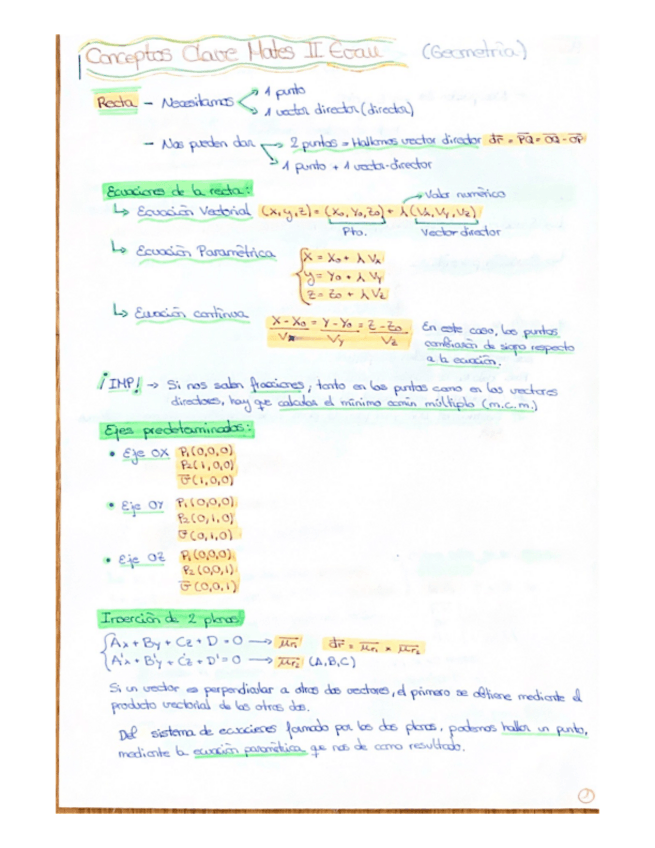 Conceptos Clave Mates II Evau (Geometría)
Recta - Necesitamos 1 punto
1 vector director (director)
- Nos pueden dar 2 puntos = Hallamos vector director dr = PQ = OQ - OP
1 punto + 1 vector director
Ecuaciones de la recta:
↳ Ecuación Vectorial (x,y,z) = (x₀, y₀, z₀) + λ (Vₓ, Vᵧ, V_z) → Valor numérico
Pto. Vector director
↳ Ecuación Paramétrica { x = x₀ + λ Vₓ
y = y₀ + λ Vᵧ
z = z₀ + λ V_z
↳ Ecuación continua x - x₀ / Vₓ = y - y₀ / Vᵧ = z - z₀ / V_z En este caso, los puntos
cambiarán de signo respecto
a la ecuación.
¡IMP! → Si nos salen fracciones, tanto en los puntos como en los vectores
directores, hay que calcular el mínimo común múltiplo (m.c.m.)
Ejes predeterminados:
• Eje OX P₁(0,0,0)
P₂(1,0,0)
v(1,0,0)
• Eje OY P₁(0,0,0)
P₂(0,1,0)
v(0,1,0)
• Eje OZ P₁(0,0,0)
P₂(0,0,1)
v(0,0,1)
Inserción de 2 planos
{ Ax + By + Cz + D = 0 → μr₁ dr = μr₁ × μr₂
A'x + B'y + C'z + D' = 0 → μr₂ (A,B,C)
Si un vector es perpendicular a otros dos vectores, el primero se obtiene mediante el
producto vectorial de los otros dos.
Del sistema de ecuaciones formado por los dos planos, podemos hallar un punto,
mediante la ecuación paramétrica que nos de como resultado.